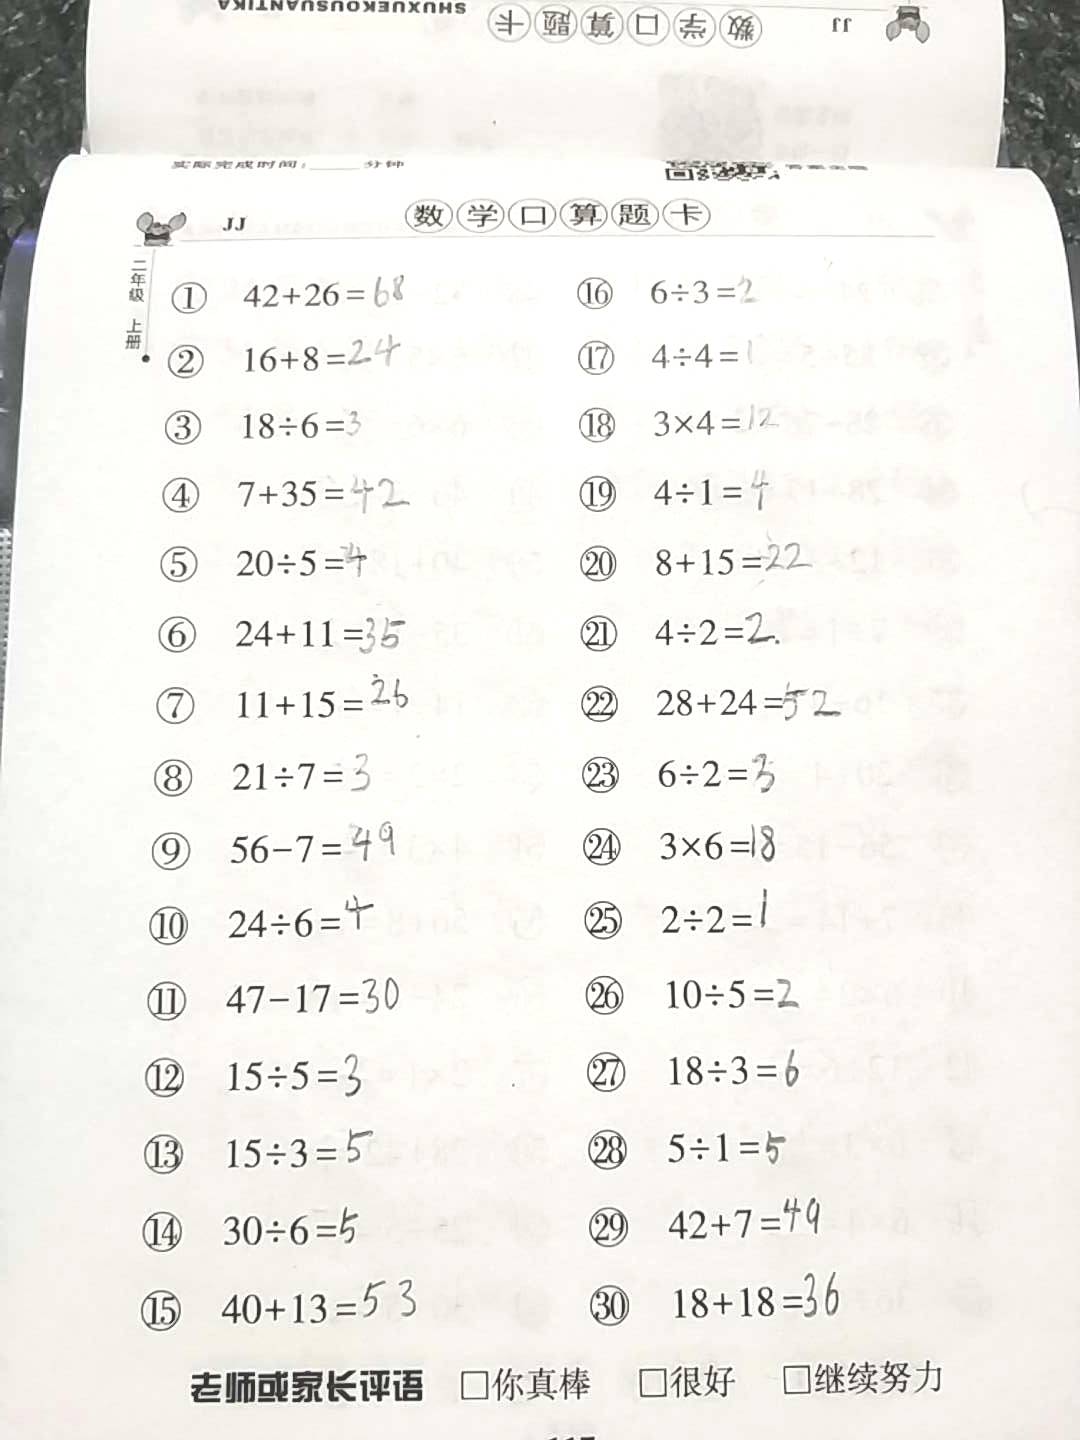 SHUXUEKOUSUANTIKA
数学口算题卡
JJ
实际完成时间:____分钟
JJ
数学口算题卡
二年级 上册
① 42+26=68
② 16+8=24
③ 18÷6=3
④ 7+35=42
⑤ 20÷5=4
⑥ 24+11=35
⑦ 11+15=26
⑧ 21÷7=3
⑨ 56-7=49
⑩ 24÷6=4
⑪ 47-17=30
⑫ 15÷5=3
⑬ 15÷3=5
⑭ 30÷6=5
⑮ 40+13=53
⑯ 6÷3=2
⑰ 4÷4=1
⑱ 3×4=12
⑲ 4÷1=4
⑳ 8+15=22
㉑ 4÷2=2.
㉒ 28+24=52
㉓ 6÷2=3
㉔ 3×6=18
㉕ 2÷2=1
㉖ 10÷5=2
㉗ 18÷3=6
㉘ 5÷1=5
㉙ 42+7=49
㉚ 18+18=36
老师或家长评语 □你真棒 □很好 □继续努力